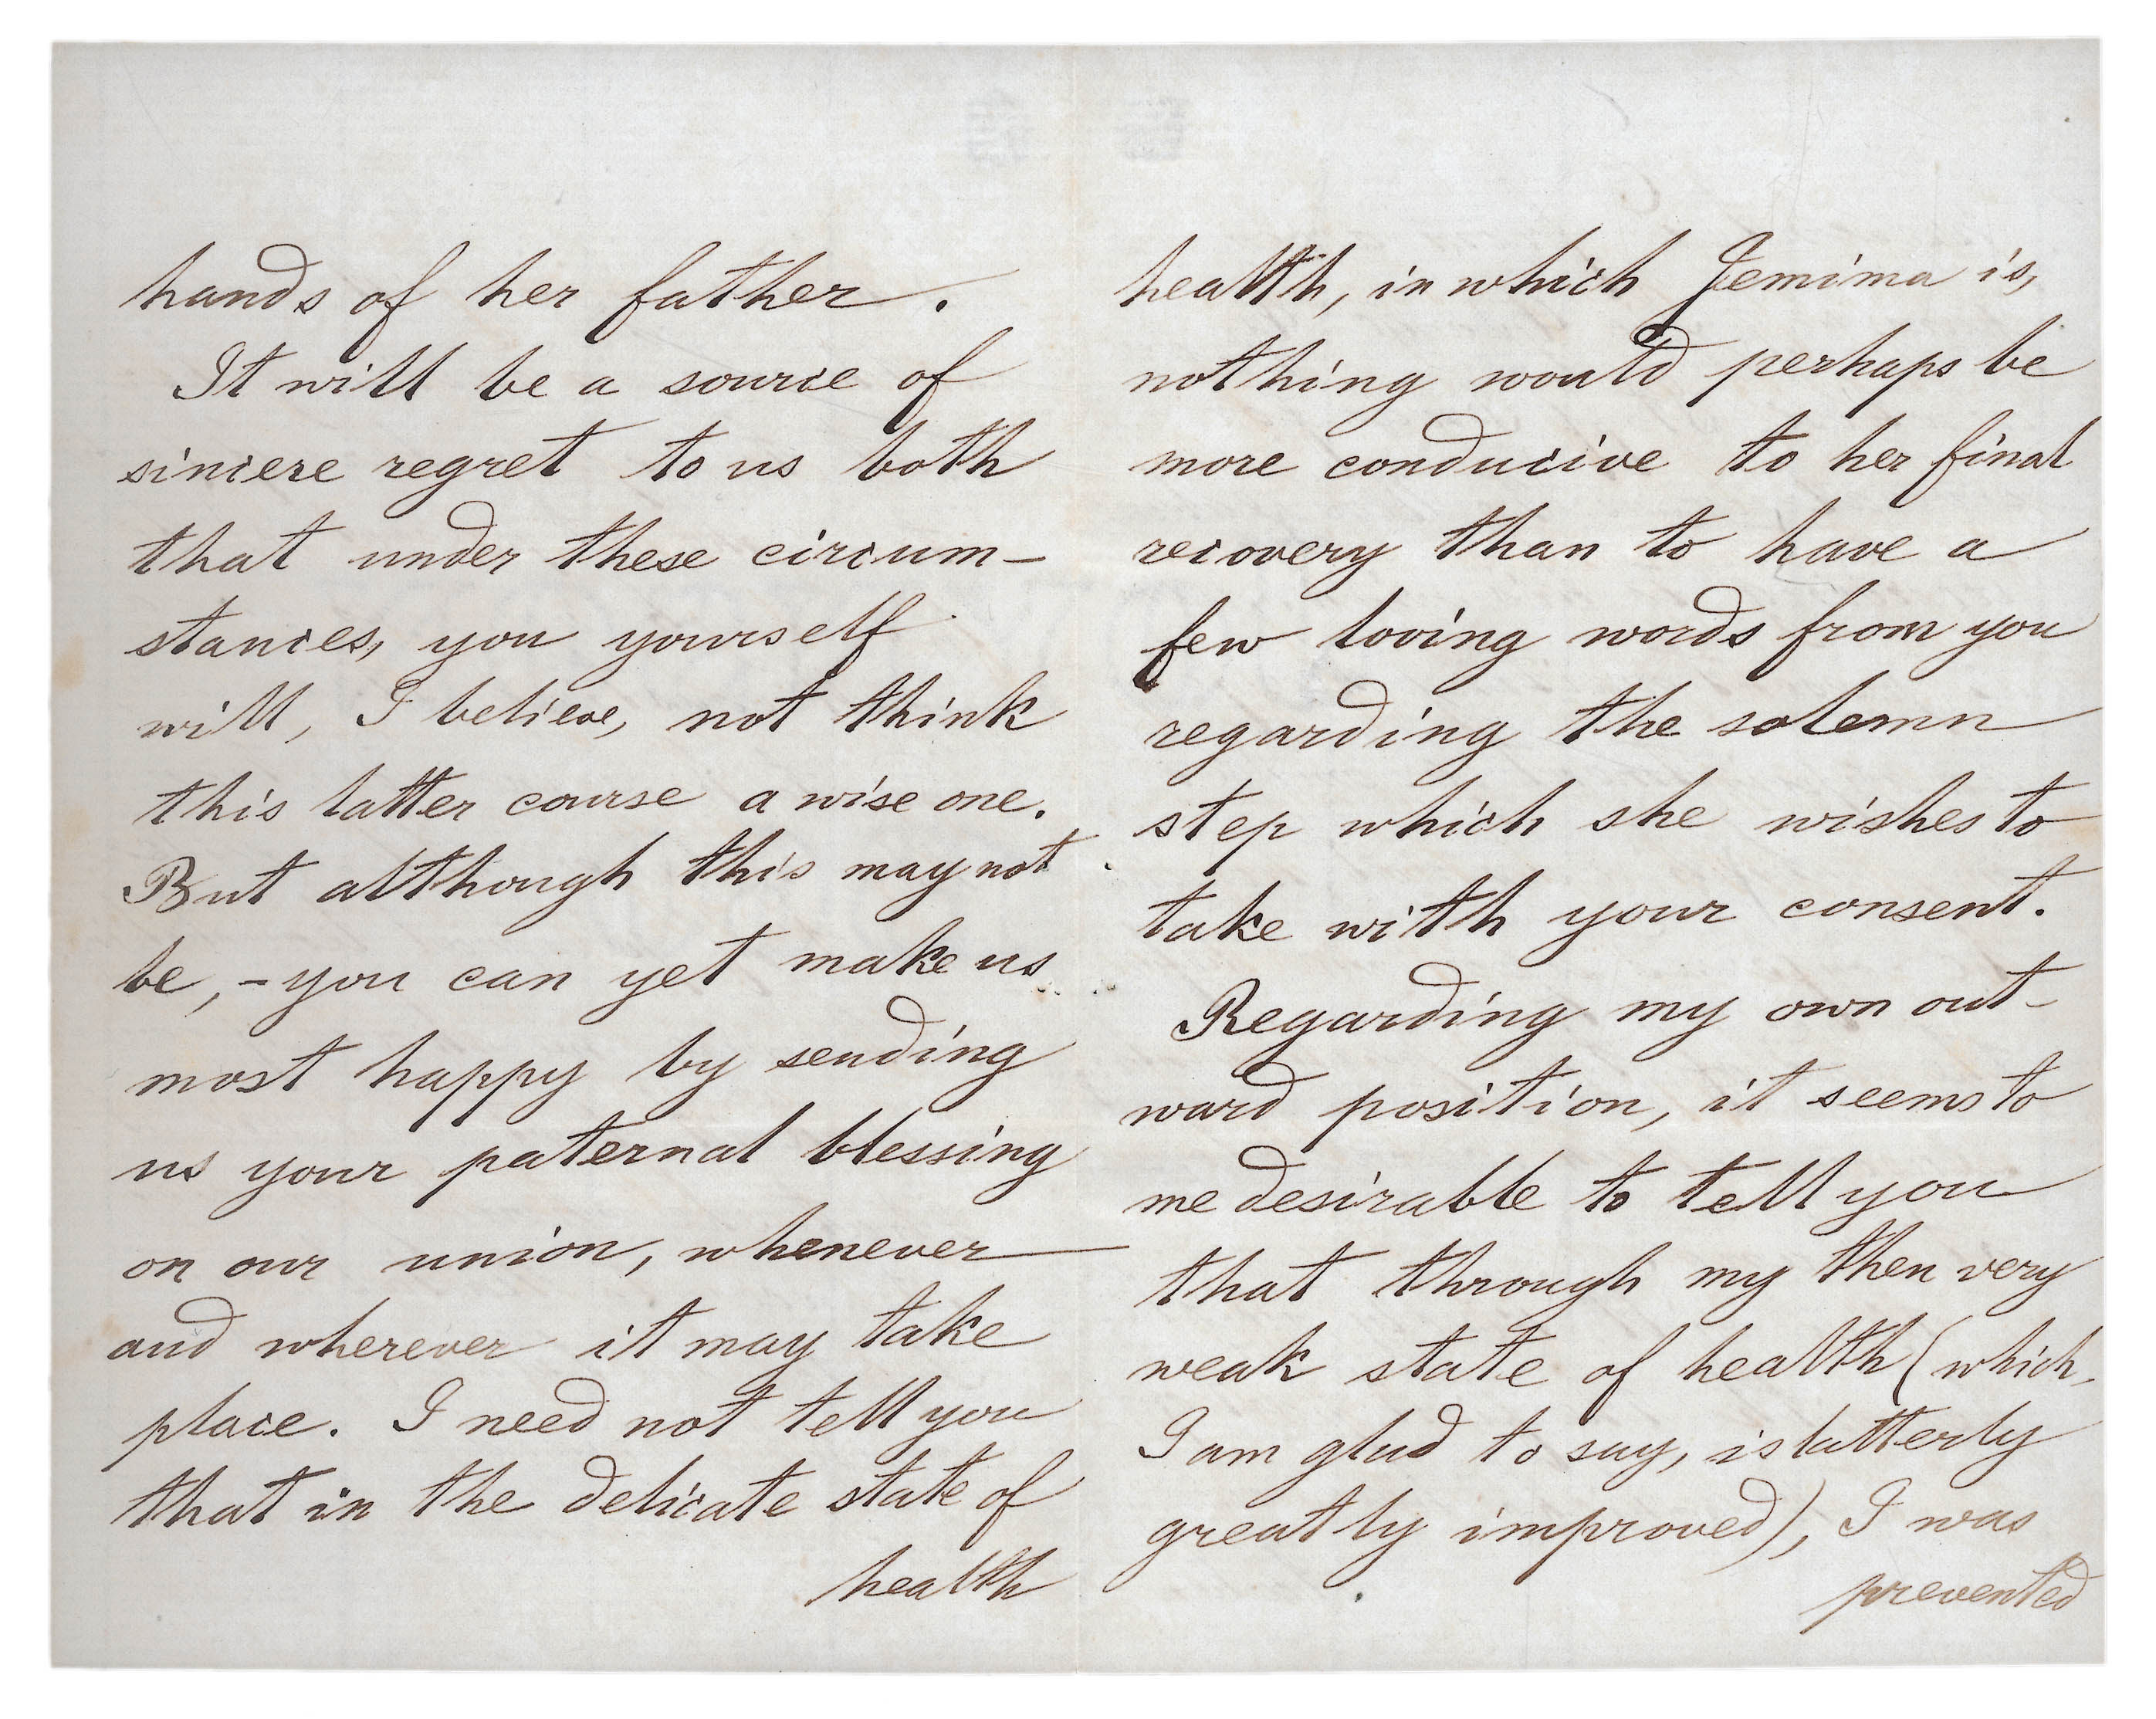 hands of her father.
It will be a source of
sincere regret to us both
that under these circum-
stances, you yourself
will, I believe, not think
this latter course a wise one.
But although this may not
be, - you can yet make us
most happy by sending
us your paternal blessing
on our union, whenever
and wherever it may take
place. I need not tell you
that in the delicate state of
health
health, in which Jemima is,
nothing would perhaps be
more conducive to her final
recovery than to have a
few loving words from you
regarding the solemn
step which she wishes to
take with your consent.
Regarding my own out-
ward position, it seems to
me desirable to tell you
that through my then very
weak state of health (which,
I am glad to say, is latterly
greatly improved), I was
prevented